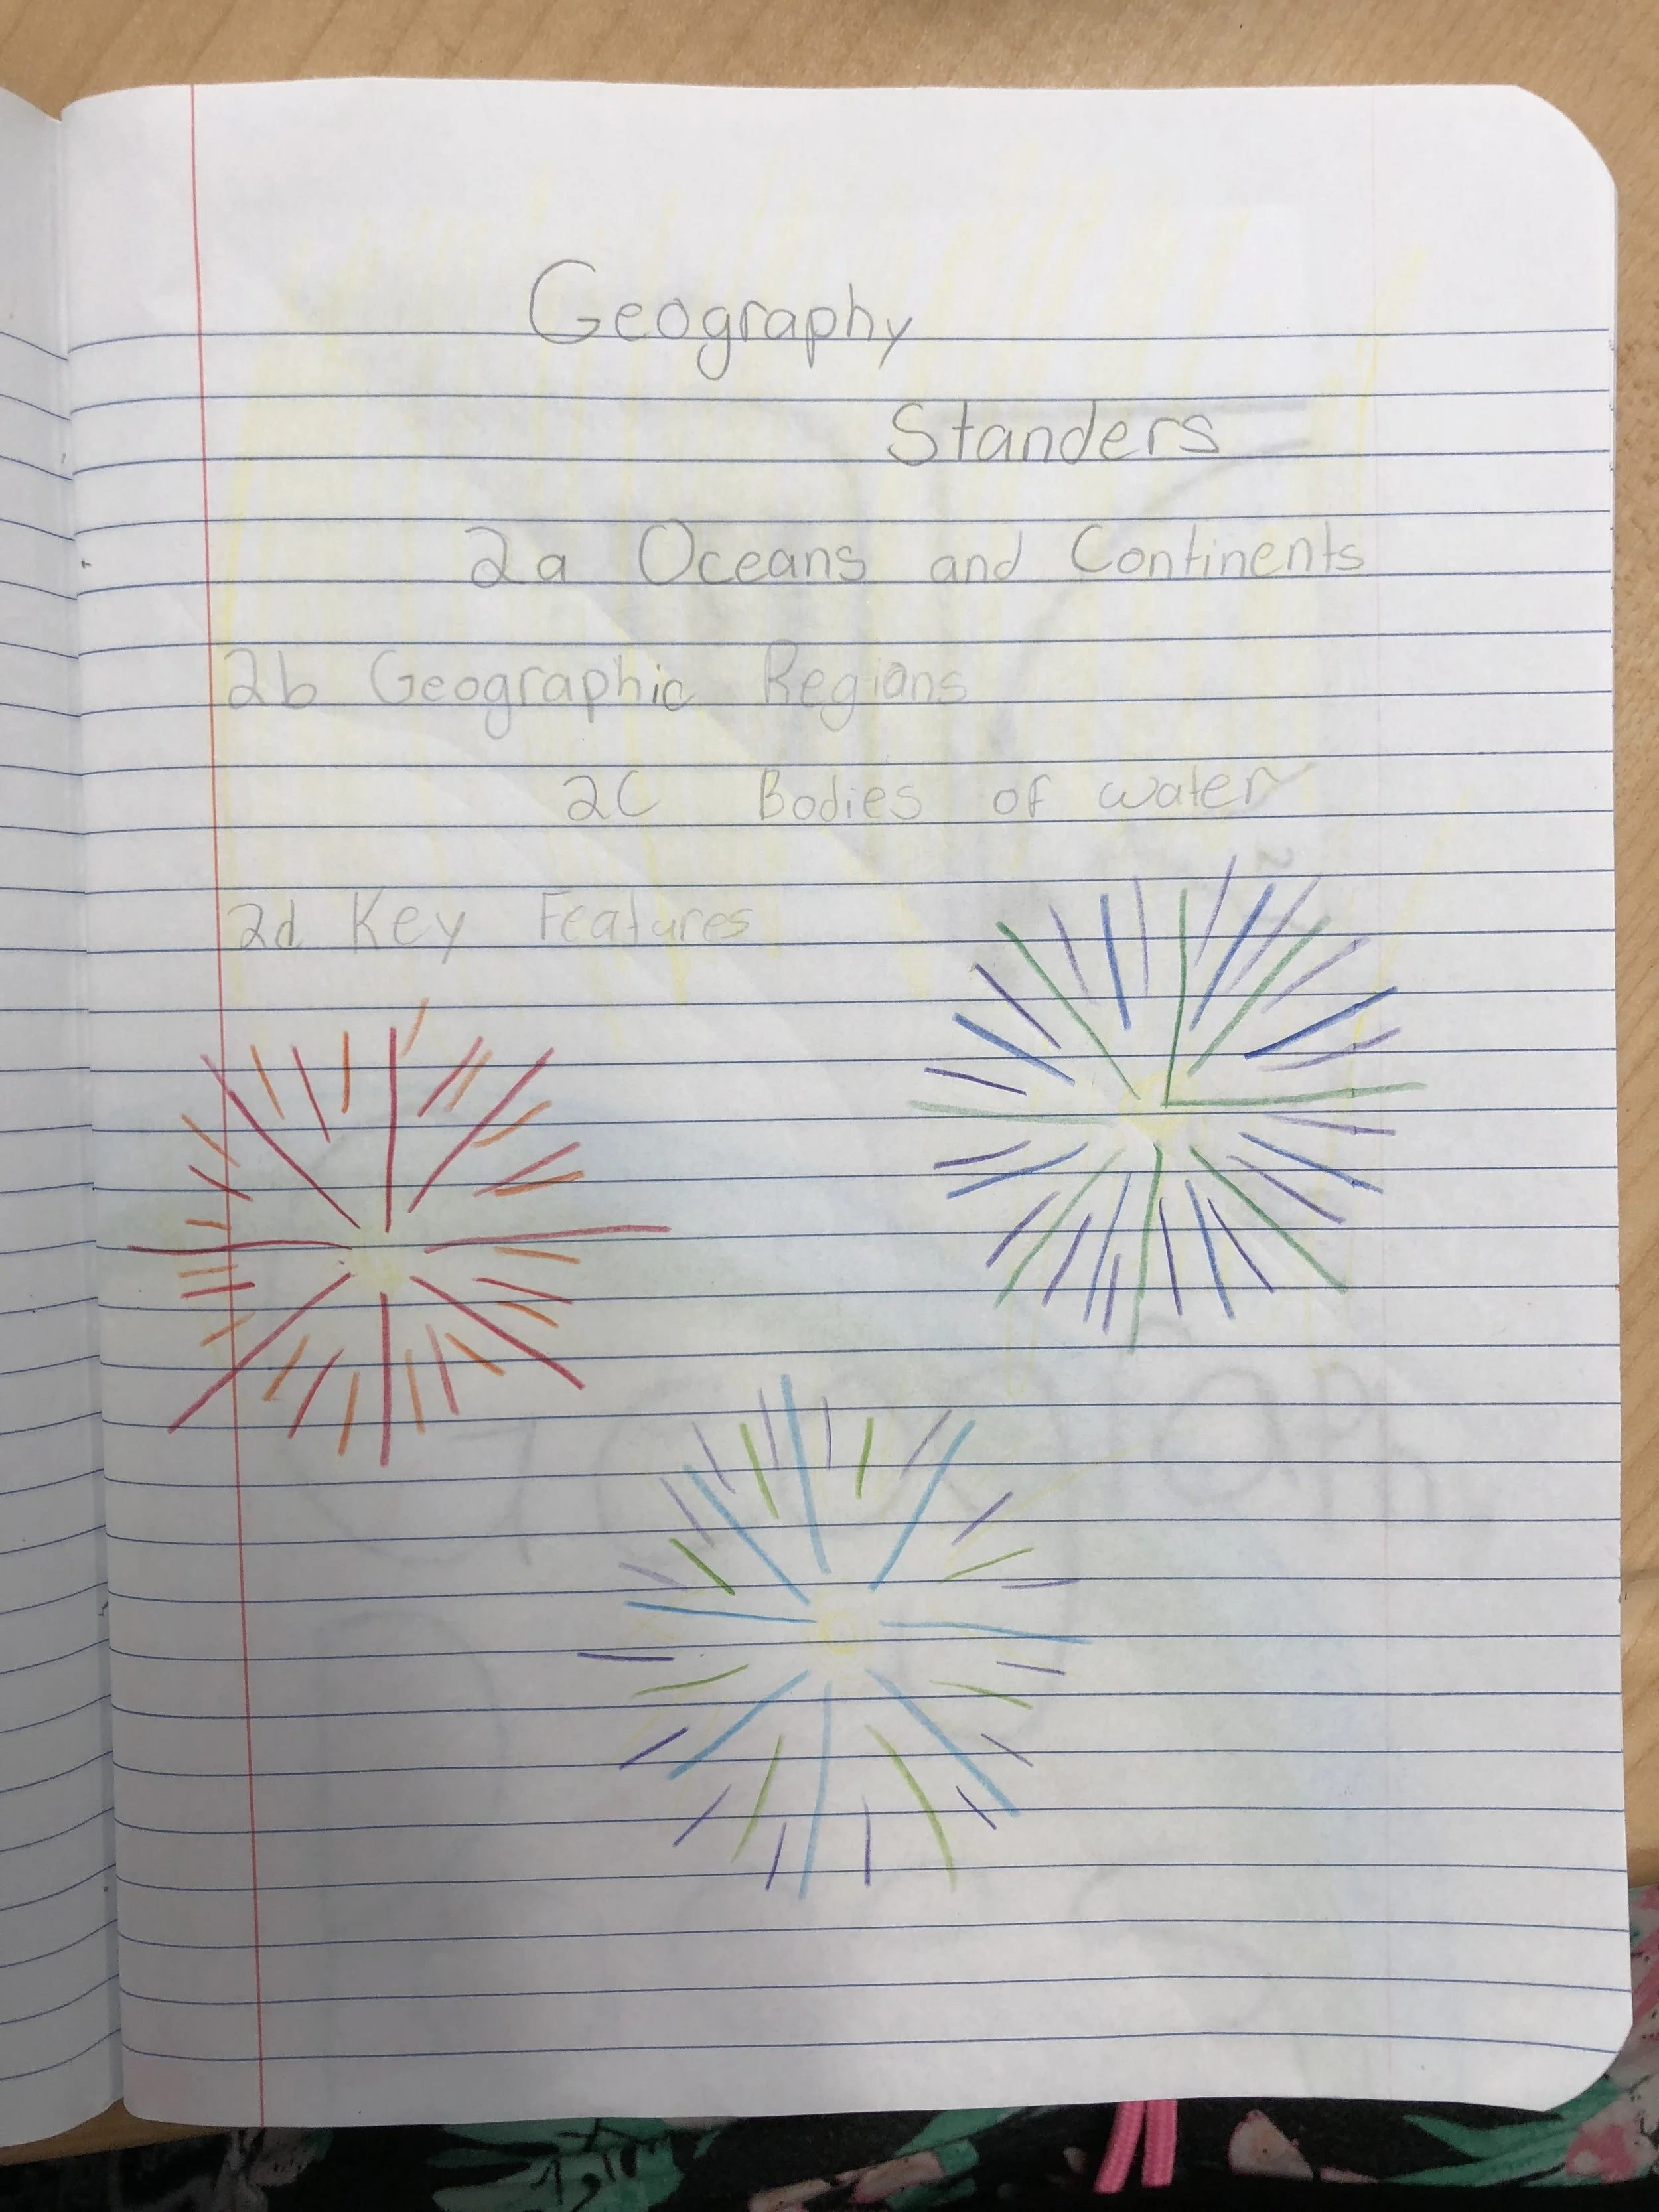 Geography
Standers
2a Oceans and Continents
2b Geographic Regions
2C Bodies of water
2d Key Features